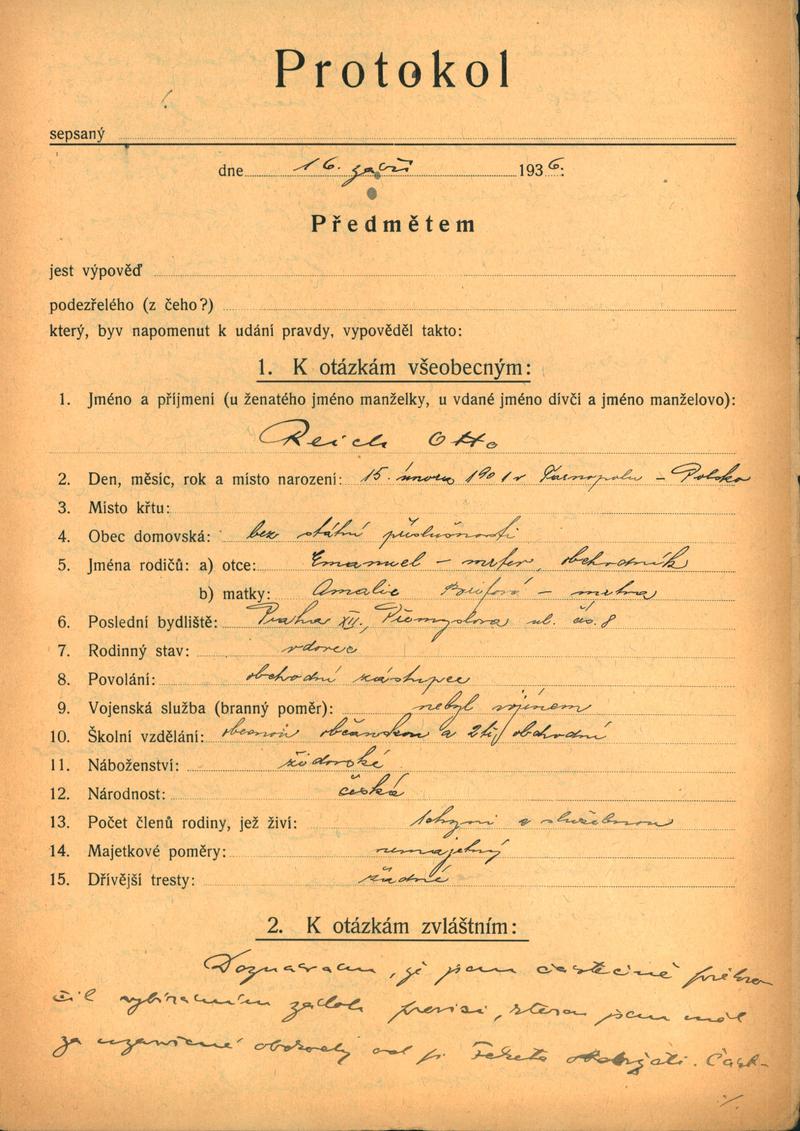 Protokol
sepsaný
dne 16. září 1936.
Předmětem
jest výpověď
podezřelého (z čeho?)
který, byv napomenut k udání pravdy, vypověděl takto:
1. K otázkám všeobecným:
1. Jméno a příjmení (u ženatého jméno manželky, u vdané jméno dívčí a jméno manželovo):
Reich Otto
2. Den, měsíc, rok a místo narození: 15. února 1901 v Tarnopolu – Polsko
3. Místo křtu:
4. Obec domovská: bez státní příslušnosti
5. Jména rodičů: a) otce: Emanuel – mrtev, obchodník
b) matky: Amalie – mrtva
6. Poslední bydliště: Praha XII., Přemyslova ul. čís. 8
7. Rodinný stav: vdovec
8. Povolání: obchodní zástupce
9. Vojenská služba (branný poměr): nebyl vojínem
10. Školní vzdělání: obecnou občanskou a 2tř. obchodní
11. Náboženství: židovské
12. Národnost: česká
13. Počet členů rodiny, jež živí: tchyni a služebnou
14. Majetkové poměry: nemajetný
15. Dřívější tresty: žádné
2. K otázkám zvláštním:
Doznávám, že jsem částečně překro-
čil vybíráním záloh provisi, kterou jsem měl
za uzavřené obchody od fi obdržeti. Část-
./.